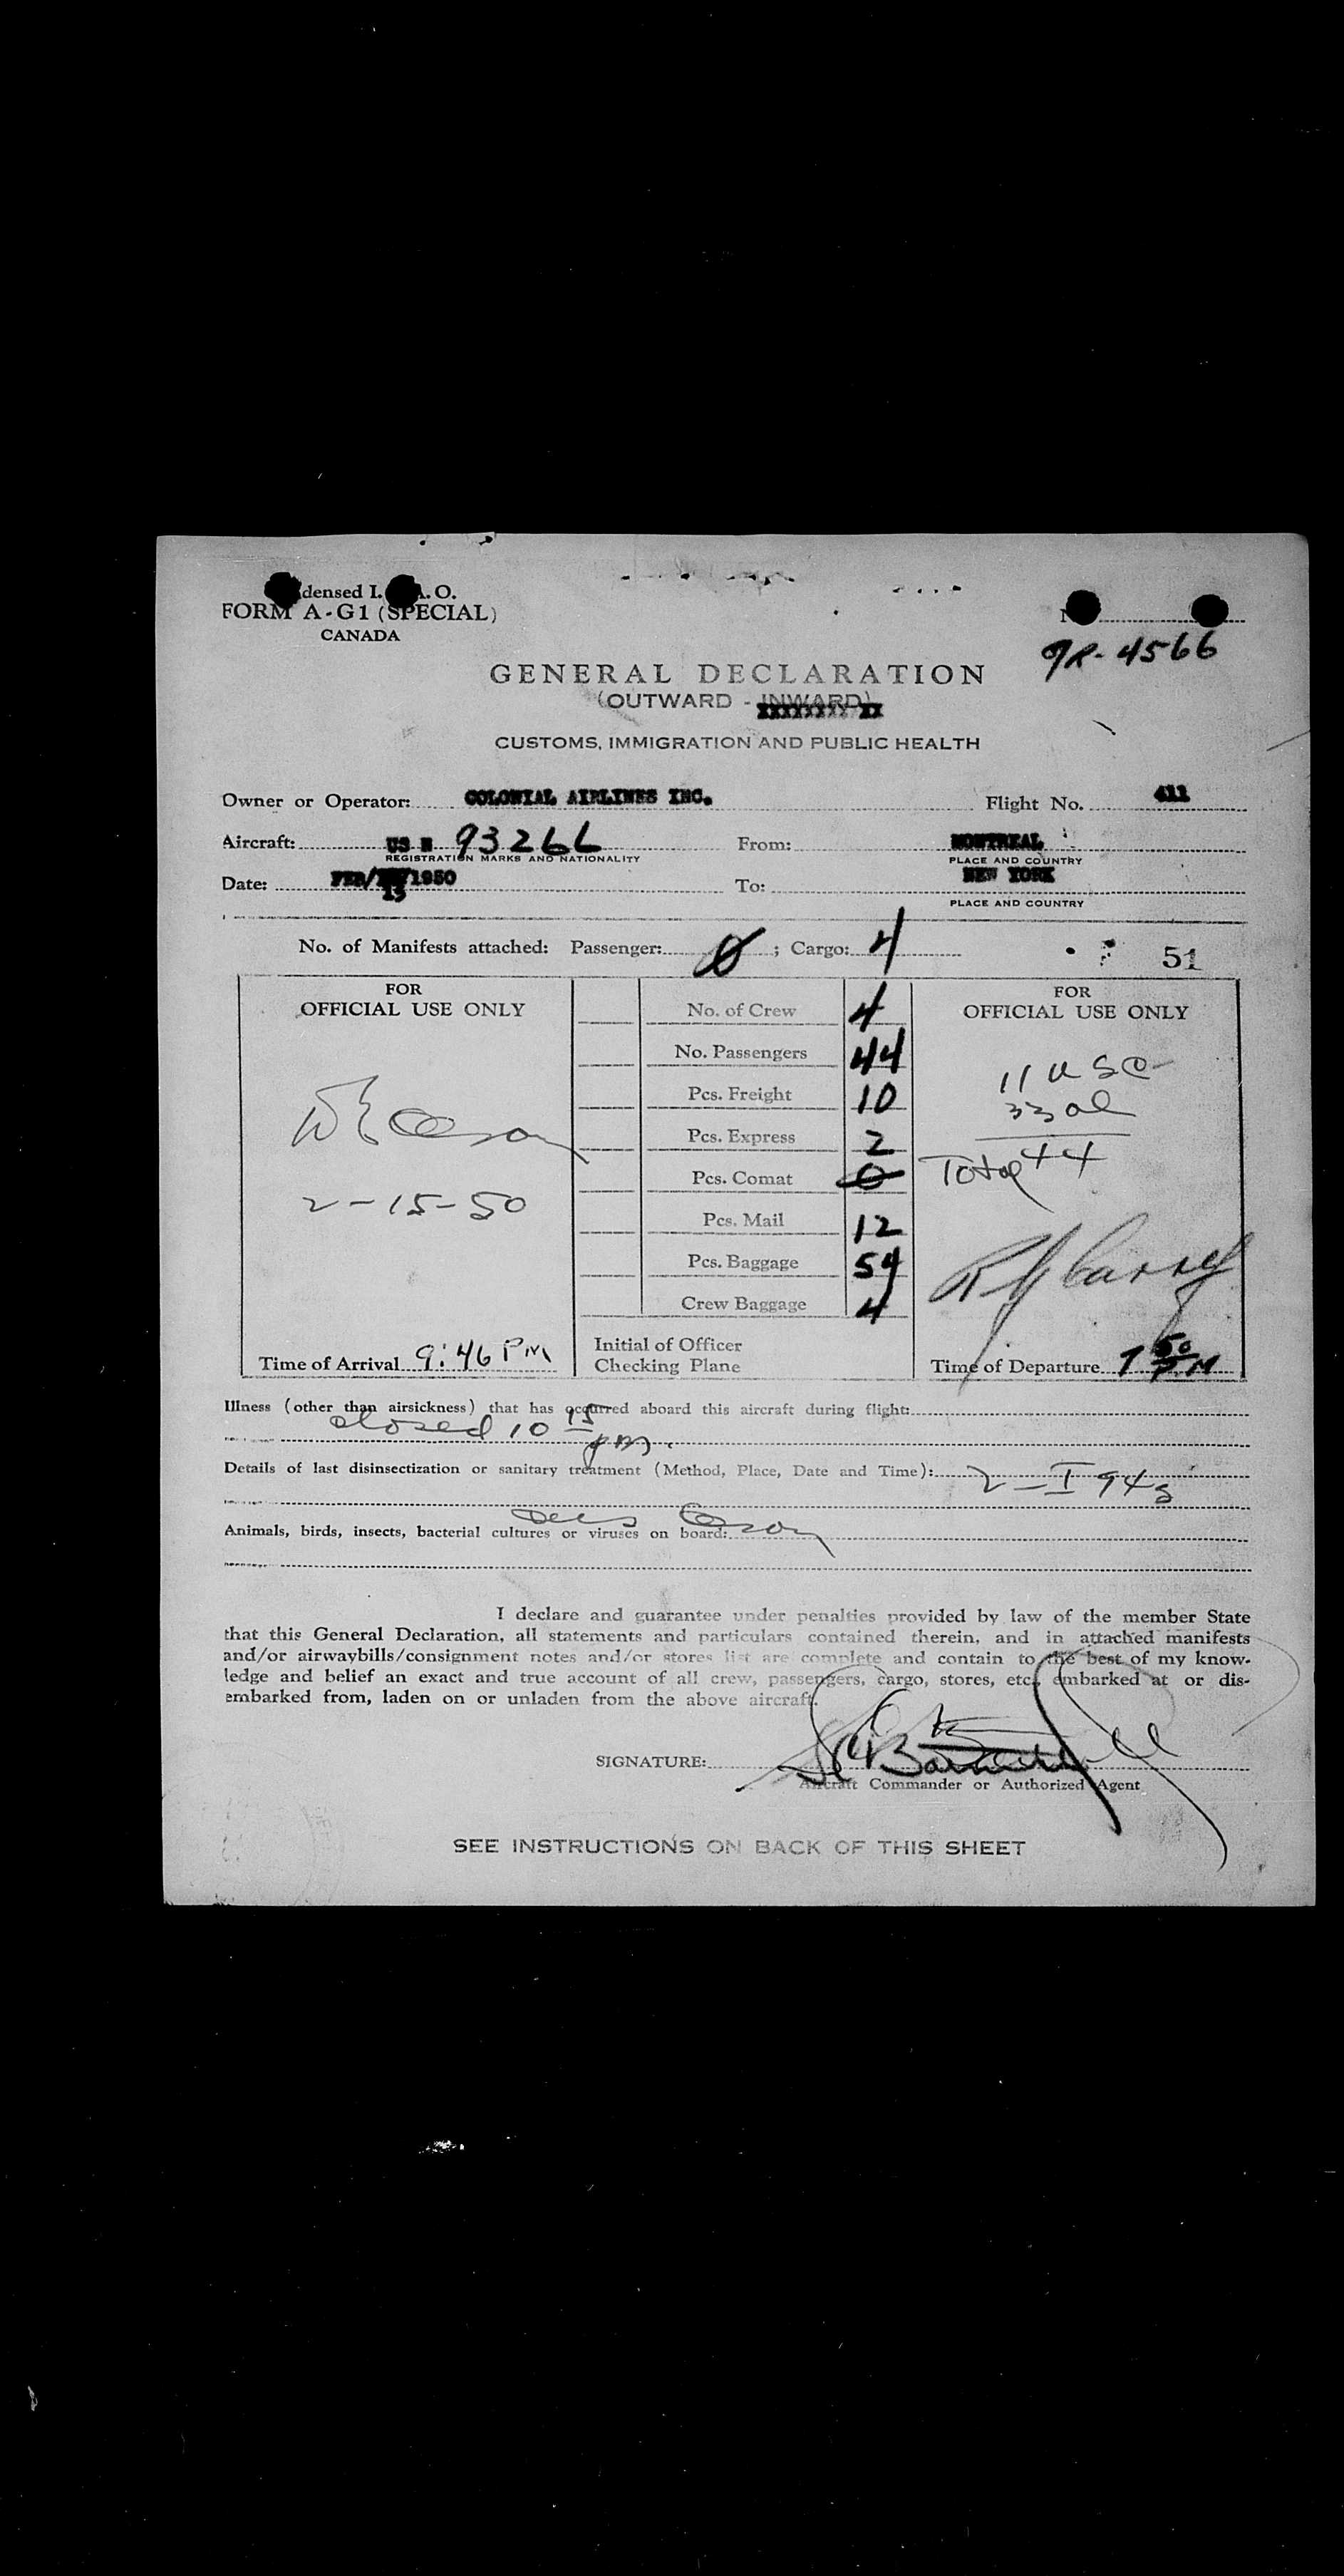 densed I. . O.
FORM A-G1 (SPECIAL)
CANADA
9R-4566
GENERAL DECLARATION
(OUTWARD - INWARD)
XXXXXXXX XX
CUSTOMS, IMMIGRATION AND PUBLIC HEALTH
Owner or Operator: COLONIAL AIRLINES INC. Flight No. 411
Aircraft: US N 93266 From: MONTREAL
REGISTRATION MARKS AND NATIONALITY PLACE AND COUNTRY
Date: FEB/15/1950 To: NEW YORK
PLACE AND COUNTRY
No. of Manifests attached: Passenger: 0 ; Cargo: 4 51
FOR
OFFICIAL USE ONLY
2-15-50
Time of Arrival 9:46 PM
No. of Crew 4
No. Passengers 44
Pcs. Freight 10
Pcs. Express 2
Pcs. Comat 0
Pcs. Mail 12
Pcs. Baggage 54
Crew Baggage 4
Initial of Officer
Checking Plane
FOR
OFFICIAL USE ONLY
11 USC
33 al
Total 44
Time of Departure 7 50 PM
Illness (other than airsickness) that has occurred aboard this aircraft during flight:
closed 10 15 pm.
Details of last disinsectization or sanitary treatment (Method, Place, Date and Time): 2-I 94
Animals, birds, insects, bacterial cultures or viruses on board:
I declare and guarantee under penalties provided by law of the member State
that this General Declaration, all statements and particulars contained therein, and in attached manifests
and/or airwaybills/consignment notes and/or stores list are complete and contain to the best of my know-
ledge and belief an exact and true account of all crew, passengers, cargo, stores, etc., embarked at or dis-
embarked from, laden on or unladen from the above aircraft.
SIGNATURE:
Aircraft Commander or Authorized Agent
SEE INSTRUCTIONS ON BACK OF THIS SHEET